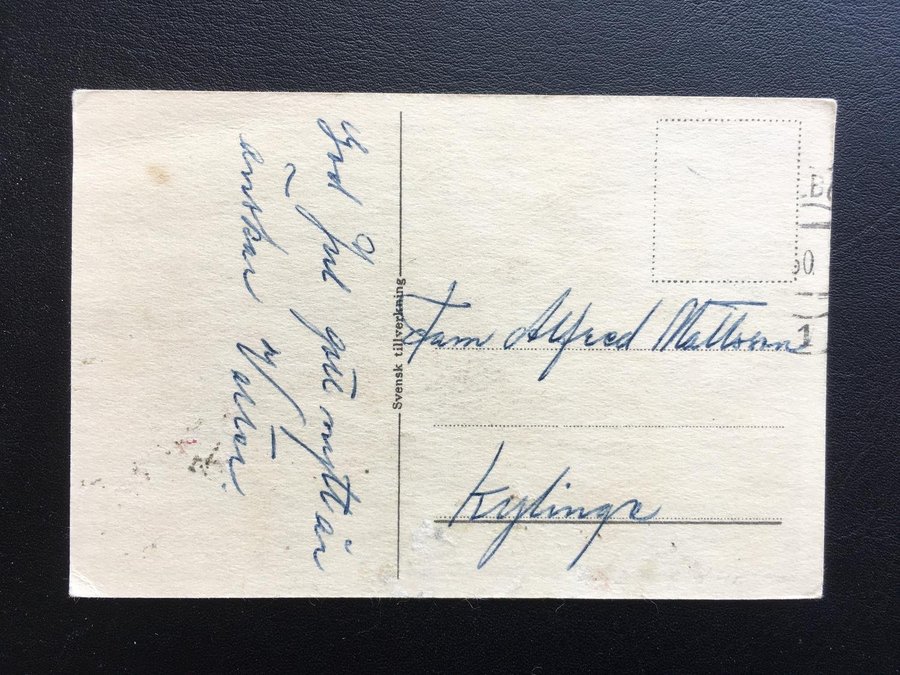 God Jul gott nytt år
önskar
Svensk tillverkning
Fam Alfred Mattsson
Kylinge
1